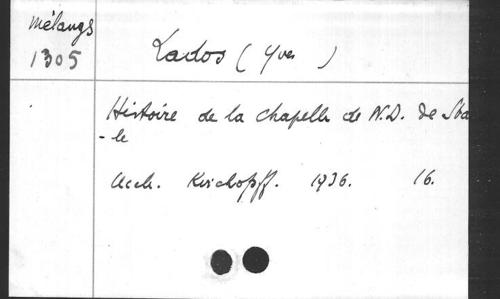 Mélangs
1305
Lados (Yves )
Histoire de la chapelle de N.D. de Sta
-le
Auch. 1936. 16.